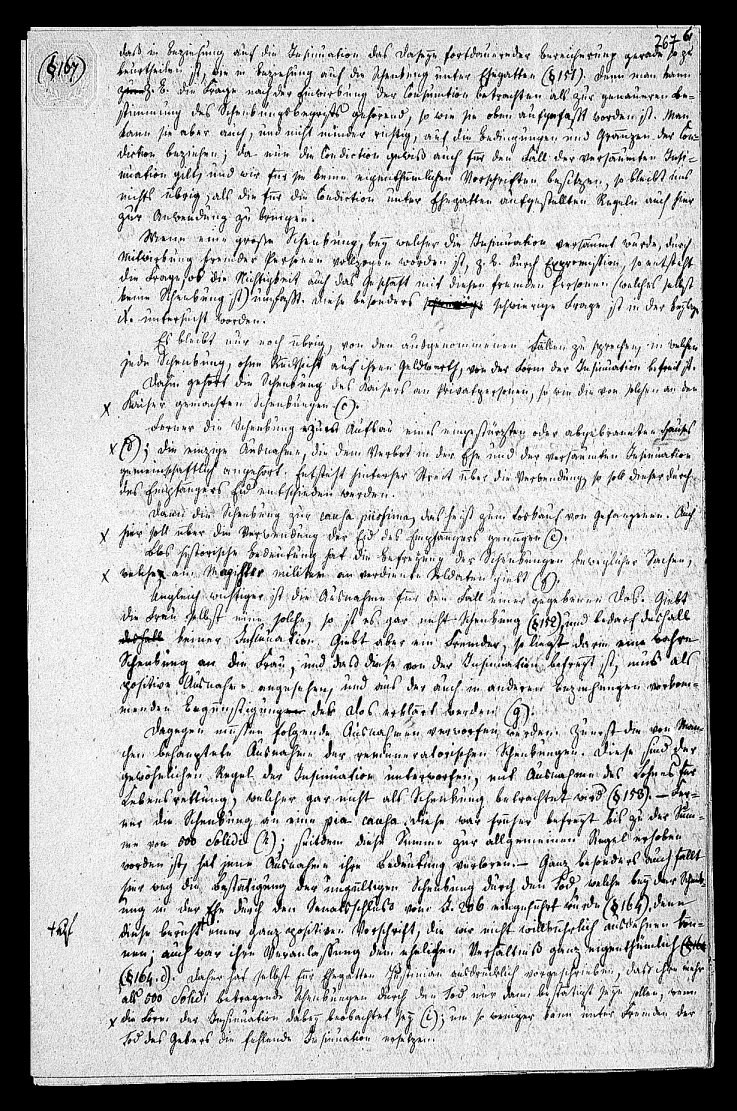 267 6
(§167)
daß in Beziehung auf die Insinuation das Daseyn fortdauernder Bereicherung gerade so zu
beurtheilen ist, wie in Beziehung auf die Schenkung unter Ehegatten (§151). Denn man kann
z. B. die Frage nach der Einwirkung der Consumtion betrachten als zur genaueren Be-
stimmung des Schenkungsbegriffs gehörend, so wie sie oben aufgefaßt worden ist. Man
kann sie aber auch, und nicht minder richtig, auf die Bedingungen und Gränzen der Con-
diction beziehen; da nun die Condiction gewiß auch für den Fall der versäumten Insi-
nuation gilt, und wir für sie keine eigenthümlichen Vorschriften besitzen, so bleibt uns
nichts übrig, als die für die Condiction unter Ehegatten aufgestellten Regeln auch hier
zur Anwendung zu bringen.
Wenn eine große Schenkung, bey welcher die Insinuation versäumt wurde, durch
Mitwirkung fremder Personen vollzogen worden ist, z. B. durch Expromission, so entsteht
die Frage, ob die Nichtigkeit auch das Geschäft mit diesen fremden Personen (welches selbst
keine Schenkung ist) umfaßt. Diese besonders schwierige Frage ist in der Beylage
untersucht worden.
Es bleibt nur noch übrig, von den ausgenommenen Fällen zu sprechen, in welchen
jede Schenkung, ohne Rücksicht auf ihren Geldwerth, von der Form der Insinuation befreit ist.
Dahin gehört die Schenkung des Kaisers an Privatpersonen, so wie die von solchen an den
x Kaiser gemachten Schenkungen (c).
Ferner die Schenkung zum Aufbau eines eingestürzten oder abgebrannten Hauses
x (d); die einzige Ausnahme, die dem Verbot in der Ehe und der versäumten Insinuation
gemeinschaftlich angehört. Entsteht hinterher Streit über die Verwendung, so soll dieser durch
des Empfängers Eid entschieden werden.
Dann die Schenkung zur causa piissima, das heißt zum Loskauf von Gefangenen. Auch
x hier soll über die Verwendung der Eid des Empfängers genügen (e).
Blos historische Bedeutung hat die Befreyung der Schenkungen beweglicher Sachen,
x welche ein Magister militum an verdiente Soldaten giebt (f).
Ungleich wichtiger ist die Ausnahme für den Fall einer gegebenen Dos. Giebt
die Frau selbst eine solche, so ist es gar nicht Schenkung (§152) und bedarf deshalb
keiner Insinuation. Giebt aber ein Fremder, so liegt darin eine wahre
Schenkung an die Frau, und daß diese von der Insinuation befreyt ist, muß als
positive Ausnahme angesehen, und aus der auch in anderen Beziehungen vorkom-
menden Begünstigung der Dos erklärt werden (g).
Dagegen müssen folgende Ausnahmen verworfen werden: Zuerst die von Man-
chen behauptete Ausnahme der remuneratorischen Schenkungen. Diese sind der
gewöhnlichen Regel der Insinuation unterworfen, mit Ausnahme des Lohnes für
Lebensrettung, welcher gar nicht als Schenkung betrachtet wird (§153). – Fer-
ner die Schenkung an eine pia causa. Diese war früher befreyt bis zu der Sum-
me von 500 Solidi (h); seitdem diese Summe zur allgemeinen Regel erhoben
worden ist, hat jene Ausnahme ihre Bedeutung verloren. – Ganz besonders auch fällt
hier weg die Bestätigung der ungültigen Schenkung durch den Tod, welche bey der Schenk-
ung in der Ehe durch den Senatsschluß vom J. 206 eingeführt wurde (§164), denn
diese beruht auf einer ganz positiven Vorschrift, die wir nicht willkührlich ausdehnen kön-
nen; auch war ihre Veranlassung dem ehelichen Verhältniß ganz eigenthümlich
(§164.d). Daher hat selbst für Ehegatten Justinian ausdrücklich vorgeschrieben, daß ihre mehr
als 500 Solidi betragende Schenkungen durch den Tod nur dann bestätigt seyn sollen, wenn
x die Form der Insinuation dabey beobachtet sey (i); um so weniger kann unter Fremden der
Tod des Gebers die fehlende Insinuation ersetzen.